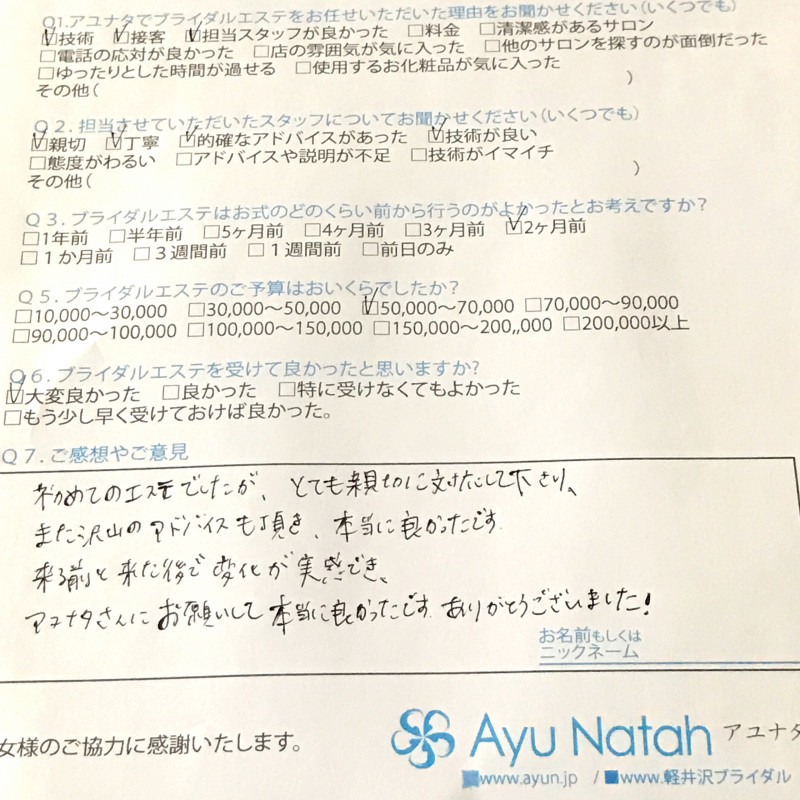 Q1.アユナタでブライダルエステをお任せいただいた理由をお聞かせください(いくつでも)
☑技術 ☑接客 ☑担当スタッフが良かった □料金 □清潔感があるサロン
□電話の応対が良かった □店の雰囲気が気に入った □他のサロンを探すのが面倒だった
□ゆったりとした時間が過せる □使用するお化粧品が気に入った
その他( )
Q2.担当させていただいたスタッフについてお聞かせください(いくつでも)
☑親切 ☑丁寧 ☑的確なアドバイスがあった ☑技術が良い
□態度がわるい □アドバイスや説明が不足 □技術がイマイチ
その他( )
Q3.ブライダルエステはお式のどのくらい前から行うのがよかったとお考えですか?
□1年前 □半年前 □5ヶ月前 □4ヶ月前 □3ヶ月前 ☑2ヶ月前
□1か月前 □3週間前 □1週間前 □前日のみ
Q5.ブライダルエステのご予算はおいくらでしたか?
□10,000〜30,000 □30,000〜50,000 ☑50,000〜70,000 □70,000〜90,000
□90,000〜100,000 □100,000〜150,000 □150,000〜200,,000 □200,000以上
Q6.ブライダルエステを受けて良かったと思いますか?
☑大変良かった □良かった □特に受けなくてもよかった
□もう少し早く受けておけば良かった。
Q7.ご感想やご意見
初めてのエステでしたが、とても親切に対応して下さり、
また沢山のアドバイスも頂き、本当に良かったです
来る前と来た後で変化が実感でき、
アユナタさんにお願いして本当に良かったです ありがとうございました!
お名前もしくは
ニックネーム
女様のご協力に感謝いたします。
Ayu Natah アユナタ
www.ayun.jp / www.軽井沢ブライダル